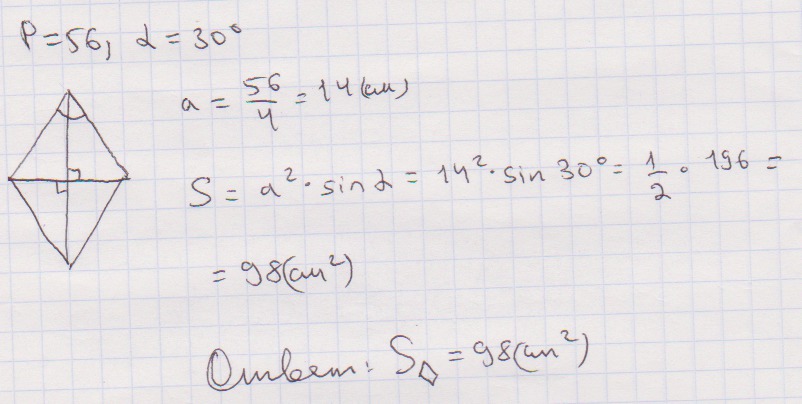 P=56, α=30°
a = 56/4 = 14(см)
S = a²·sin α = 14²·sin 30° = 1/2 · 196 =
= 98(см²)
Ответ: S◊ = 98(см²)